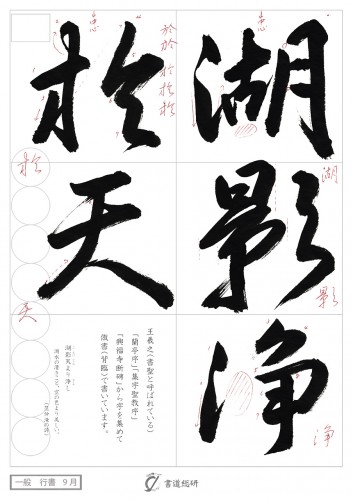 湖影浄
於天
湖
影
浄
於
天
於於於於於
王羲之(書聖と呼ばれている)
「蘭亭序」「集字聖教序」
「興福寺断碑」から字を集めて
倣書(背臨)で書いています。
湖影天より浄し
湖水の清きこと、空の色より美しい。
一般 行書 9月
書道総研